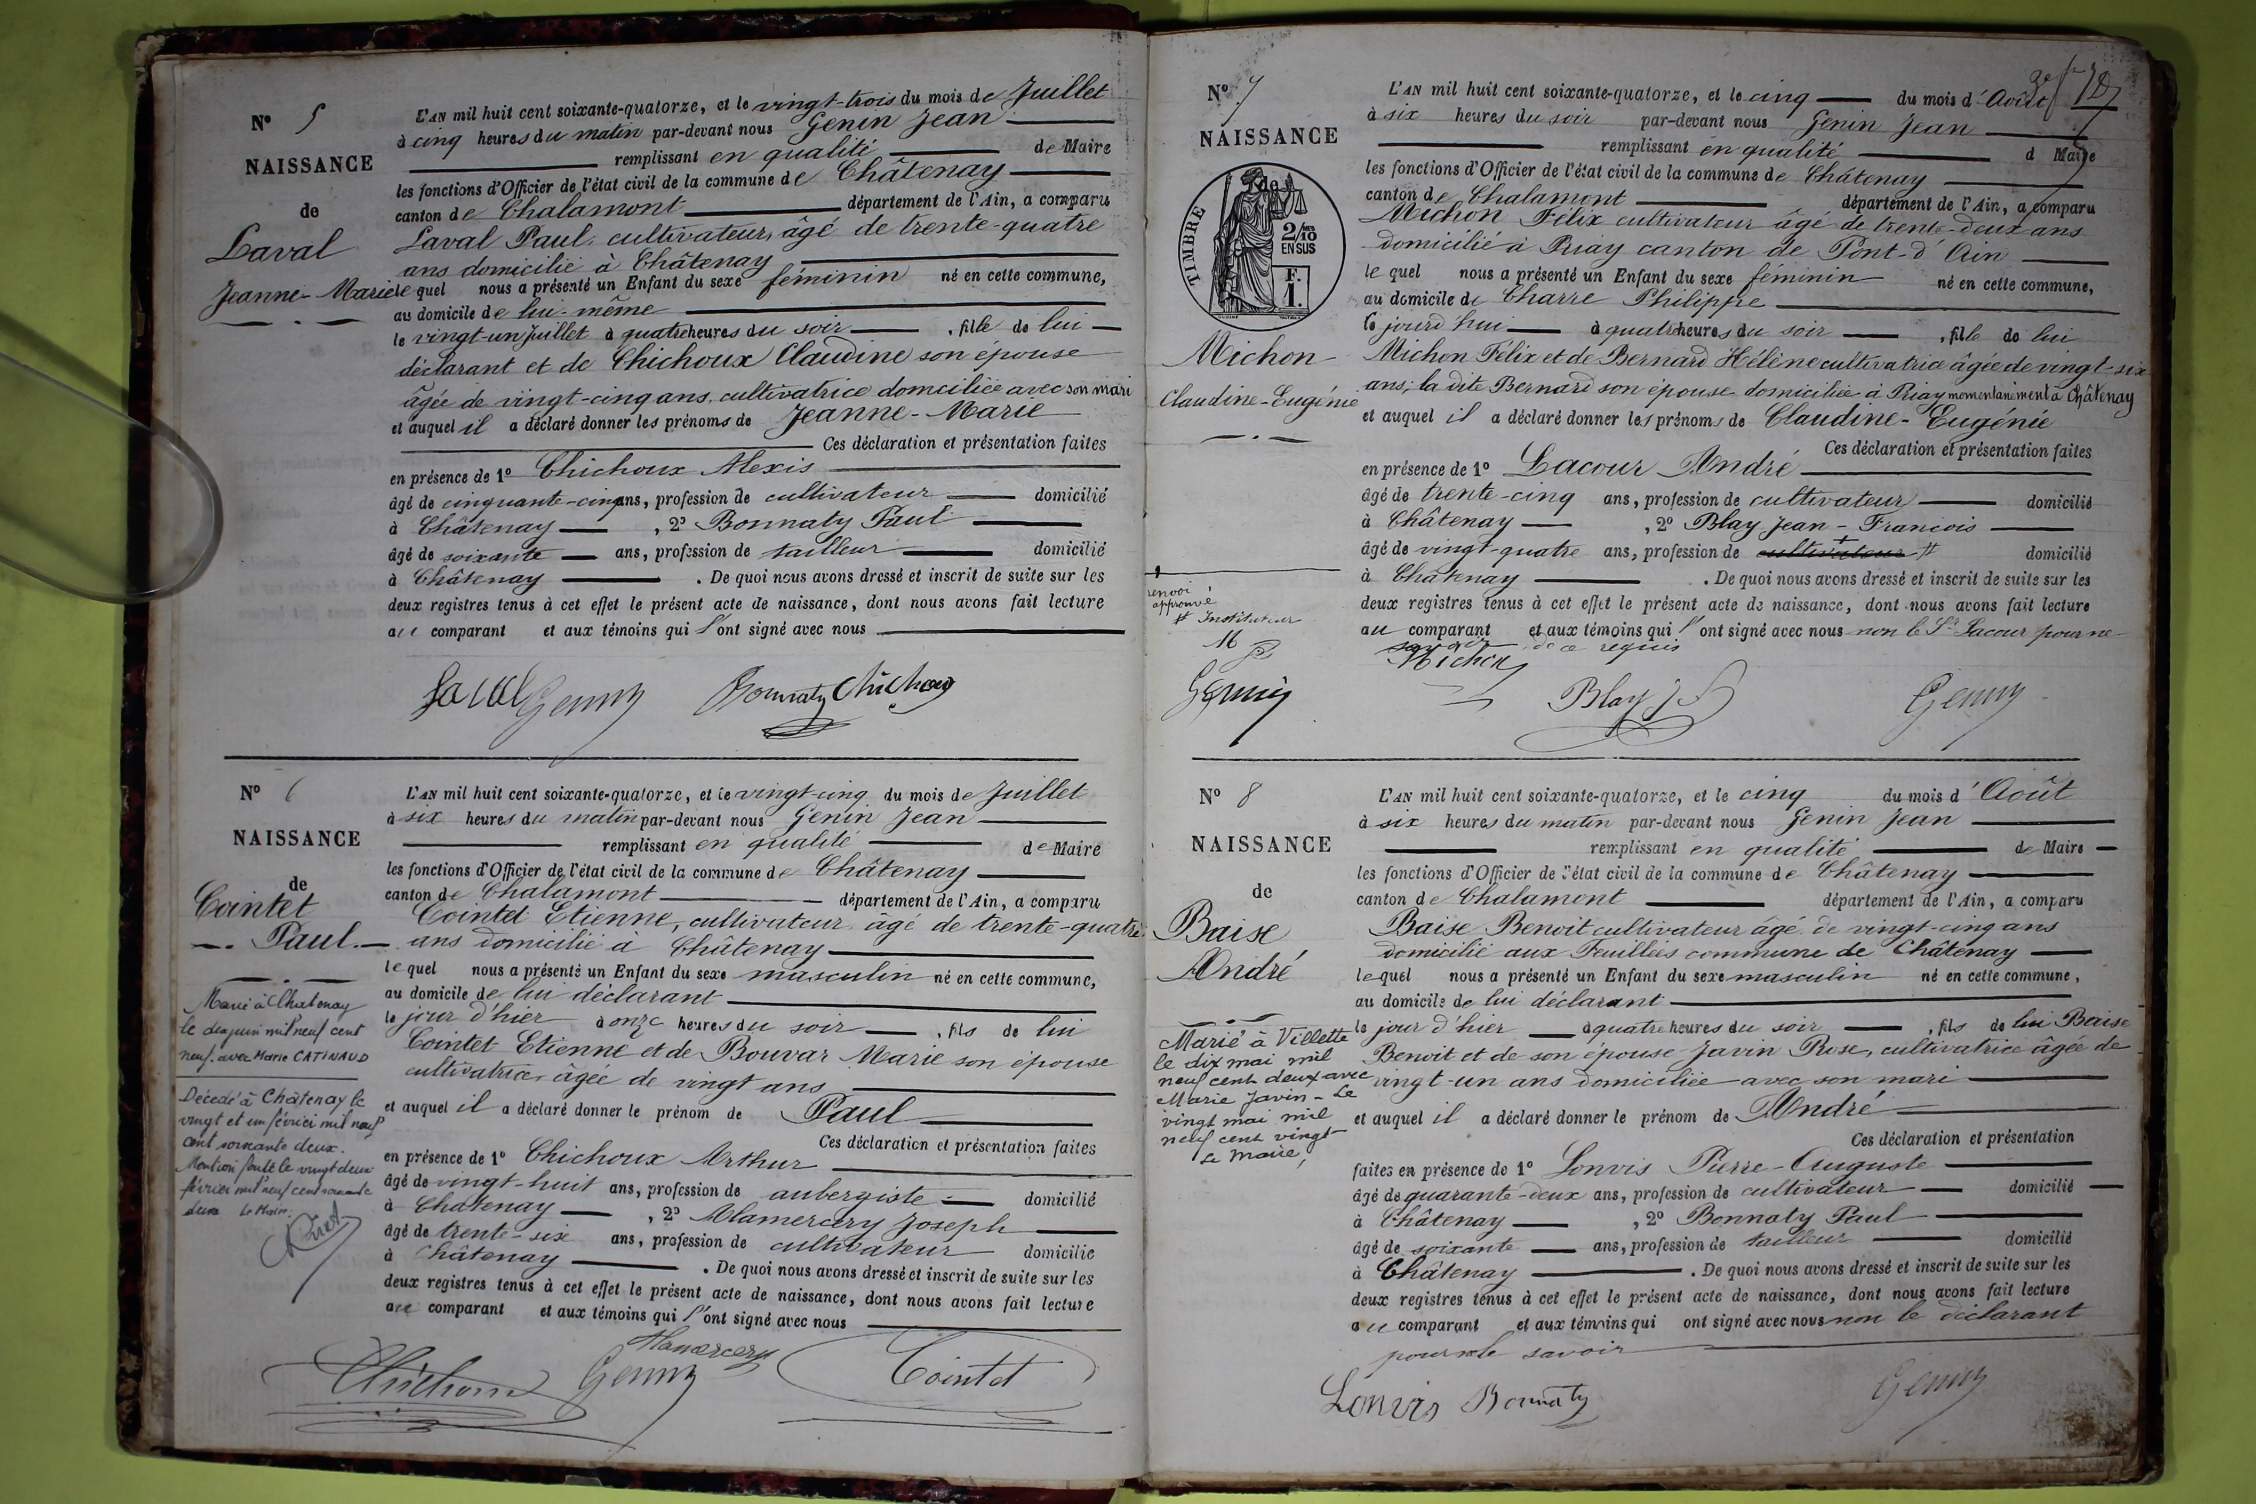 N° 5
NAISSANCE
de
Laval
Jeanne-Marie
L'AN mil huit cent soixante-quatorze, et le vingt-trois du mois de Juillet
à cinq heures du matin par-devant nous Genin Jean
remplissant en qualité de Maire
les fonctions d'Officier de l'état civil de la commune de Châtenay
canton de Chalamont département de l'Ain, a comparu
Laval Paul, cultivateur, âgé de trente-quatre
ans domicilié à Châtenay
le quel nous a présenté un Enfant du sexe féminin né en cette commune,
au domicile de lui-même
le vingt-un Juillet à quatre heures du soir, fille de lui
déclarant et de Chichoux Claudine son épouse
âgée de vingt-cinq ans, cultivatrice domiciliée avec son mari
et auquel il a déclaré donner les prénoms de Jeanne-Marie
Ces déclaration et présentation faites
en présence de 1° Chichoux Alexis
âgé de cinquante-cinq ans, profession de cultivateur domicilié
à Châtenay, 2° Bonnaty Paul
âgé de soixante ans, profession de tailleur domicilié
à Châtenay. De quoi nous avons dressé et inscrit de suite sur les
deux registres tenus à cet effet le présent acte de naissance, dont nous avons fait lecture
au comparant et aux témoins qui l'ont signé avec nous
Laval Genin Bonnaty Chichoux
N° 6
NAISSANCE
de
Cointet
Paul
Marié à Chatenay
le dix juin mil neuf cent
neuf avec Marie CATINAUD
Décédé à Châtenay le
vingt et un février mil neuf
cent soixante deux.
Mention faite le vingt deux
février mil neuf cent soixante
deux Le Maire.
L'AN mil huit cent soixante-quatorze, et le vingt-cinq du mois de Juillet
à six heures du matin par-devant nous Genin Jean
remplissant en qualité de Maire
les fonctions d'Officier de l'état civil de la commune de Châtenay
canton de Chalamont département de l'Ain, a comparu
Cointet Etienne, cultivateur âgé de trente-quatre
ans domicilié à Châtenay
le quel nous a présenté un Enfant du sexe masculin né en cette commune,
au domicile de lui déclarant
le jour d'hier à onze heures du soir, fils de lui
Cointet Etienne et de Bouvar Marie son épouse
cultivatrice, âgée de vingt ans
et auquel il a déclaré donner le prénom de Paul
Ces déclaration et présentation faites
en présence de 1° Chichoux Arthur
âgé de vingt-huit ans, profession de aubergiste domicilié
à Châtenay, 2° Mamercery Joseph
âgé de trente-six ans, profession de cultivateur domicilié
à Châtenay. De quoi nous avons dressé et inscrit de suite sur les
deux registres tenus à cet effet le présent acte de naissance, dont nous avons fait lecture
au comparant et aux témoins qui l'ont signé avec nous
Mamercery
Chichoux Genin Cointet
N° 7
NAISSANCE
de
TIMBRE
2/10
EN SUS
F.
1.
Michon
Claudine-Eugénie
renvoi
approuvé
# Instituteur
M
Genin
L'AN mil huit cent soixante-quatorze, et le cinq du mois d'Août
à six heures du soir par-devant nous Genin Jean
remplissant en qualité d Maire
les fonctions d'Officier de l'état civil de la commune de Châtenay
canton de Chalamont département de l'Ain, a comparu
Michon Félix cultivateur âgé de trente-deux ans
domicilié à Priay canton de Pont-d'Ain
le quel nous a présenté un Enfant du sexe féminin né en cette commune,
au domicile de Charre Philippe
le jourd'hui à quatre heures du soir, fille de lui
Michon Félix et de Bernard Hélène cultivatrice âgée de vingt-six
ans; la dite Bernard son épouse domiciliée à Priay momentanément à Châtenay
et auquel il a déclaré donner les prénoms de Claudine-Eugénie
Ces déclaration et présentation faites
en présence de 1° Lacour André
âgé de trente-cinq ans, profession de cultivateur domicilié
à Châtenay, 2° Blay Jean-François
âgé de vingt-quatre ans, profession de cultivateur # domicilié
à Châtenay. De quoi nous avons dressé et inscrit de suite sur les
deux registres tenus à cet effet le présent acte de naissance, dont nous avons fait lecture
au comparant et aux témoins qui l'ont signé avec nous non le Sr Lacour pour ne
savoir de ce requis
Michon
Blay Genin
N° 8
NAISSANCE
de
Baise
André
Marié à Villette
le dix mai mil
neuf cent deux avec
Marie Javin - Le
vingt mai mil
neuf cent vingt-
Le Maire,
L'AN mil huit cent soixante-quatorze, et le cinq du mois d'Août
à six heures du matin par-devant nous Genin Jean
remplissant en qualité de Maire
les fonctions d'Officier de l'état civil de la commune de Châtenay
canton de Chalamont département de l'Ain, a comparu
Baise Benoit cultivateur âgé de vingt-cinq ans
domicilié aux Feuillées commune de Châtenay
lequel nous a présenté un Enfant du sexe masculin né en cette commune,
au domicile de lui déclarant
le jour d'hier à quatre heures du soir, fils de lui Baise
Benoit et de son épouse Javin Rose, cultivatrice âgée de
vingt-un ans domiciliée avec son mari
et auquel il a déclaré donner le prénom de André
Ces déclaration et présentation
faites en présence de 1° Lonvis Pierre-Auguste
âgé de quarante-deux ans, profession de cultivateur domicilié
à Châtenay, 2° Bonnaty Paul
âgé de soixante ans, profession de tailleur domicilié
à Châtenay. De quoi nous avons dressé et inscrit de suite sur les
deux registres tenus à cet effet le présent acte de naissance, dont nous avons fait lecture
au comparant et aux témoins qui ont signé avec nous non le déclarant
pour ne le savoir
Lonvis Bonnaty Genin